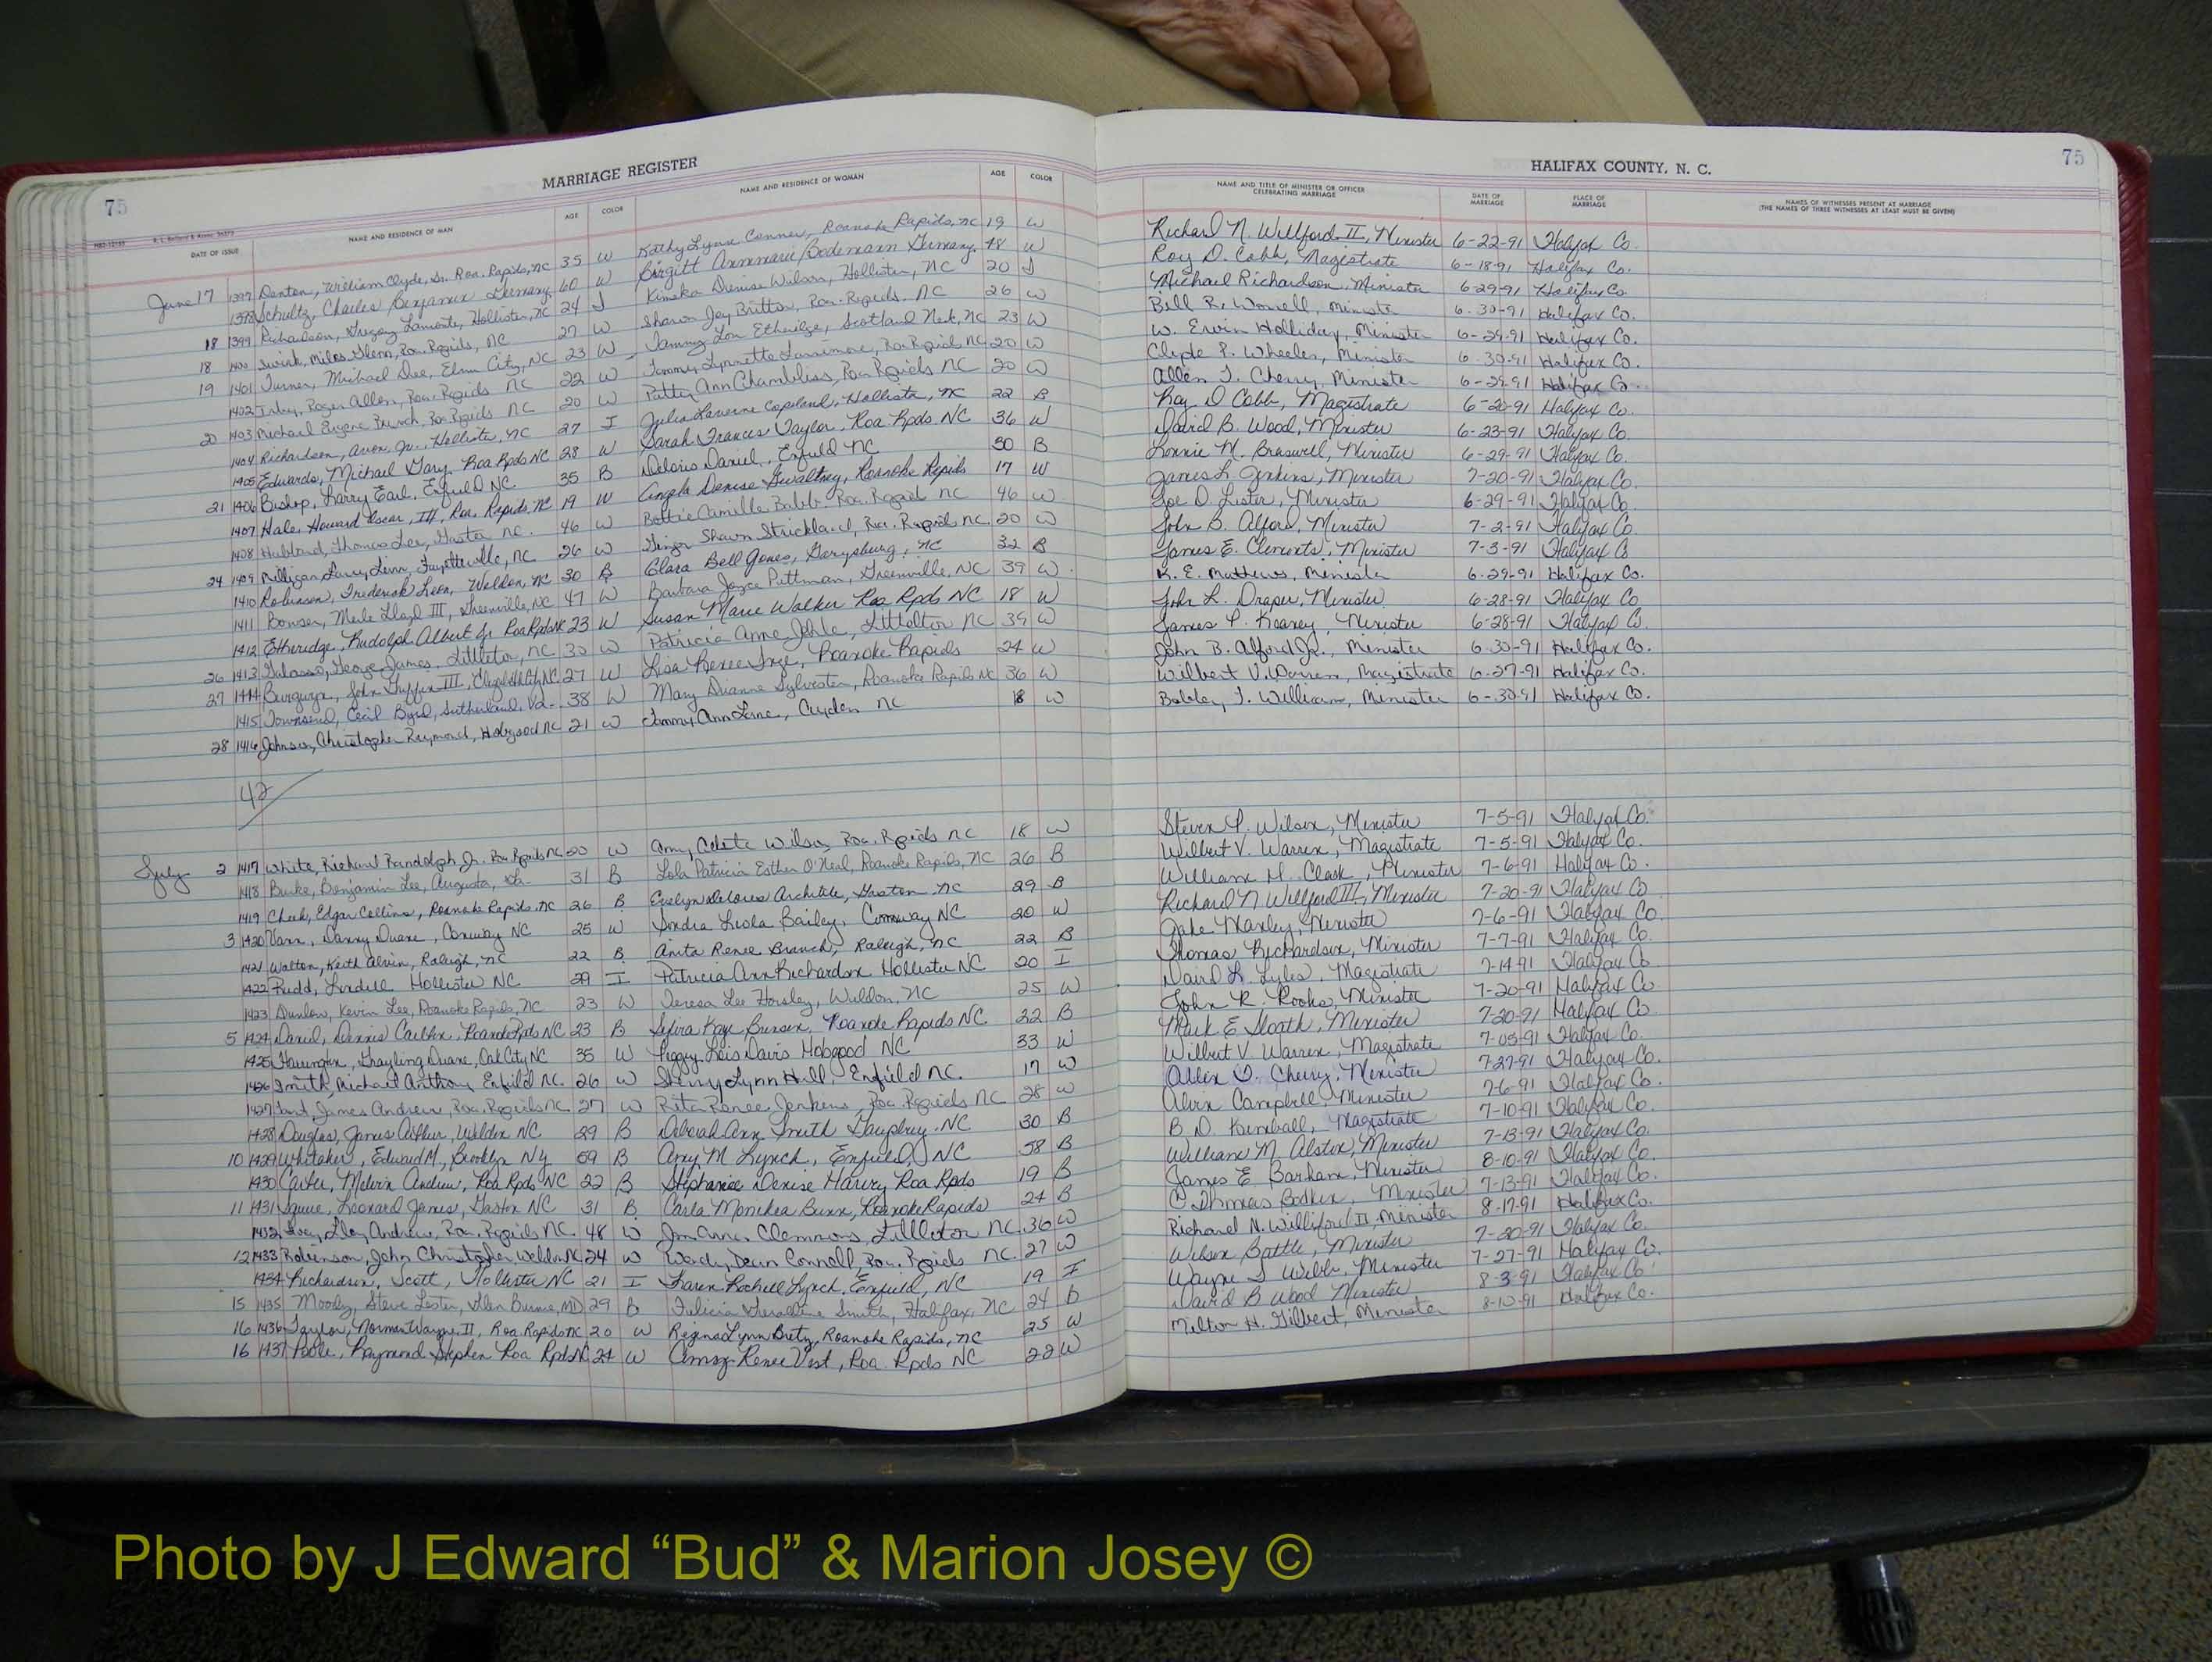 MARRIAGE REGISTER
HALIFAX COUNTY, N. C.
75
75
DATE OF ISSUE NAME AND RESIDENCE OF MAN AGE COLOR NAME AND RESIDENCE OF WOMAN AGE COLOR NAME AND TITLE OF MINISTER OR OFFICER CELEBRATING MARRIAGE DATE OF MARRIAGE PLACE OF MARRIAGE NAMES OF WITNESSES PRESENT AT MARRIAGE (THE NAMES OF THREE WITNESSES AT LEAST MUST BE GIVEN)
June 17 1397 Denton, William Clyde, Sr. Roa. Rapids, NC 35 W Kathy Lynn Conner, Roanoke Rapids, NC 19 W Richard N. Willford II, Minister 6-22-91 Halifax Co.
1398 Schultz, Charles Benjamin Germany 60 W Birgitt Annmarie Bodemann Germany 48 W Roy D. Cobb, Magistrate 6-18-91 Halifax Co.
18 1399 Richardson, Gregory Lamonte, Hollister, NC 24 I Kimeka Denise Wilson, Hollister, NC 20 I Michael Richardson, Minister 6-29-91 Halifax Co.
18 1400 Miles Glenn, Roa. Rapids, NC 27 W Sharon Joy Britton, Roa. Rapids, NC 26 W Bill R. Worrell, Minister 6-30-91 Halifax Co.
19 1401 Turner, Michael Dee, Elm City, NC 23 W Tammy Lou Etheridge, Scotland Neck, NC 23 W W. Ervin Holliday, Minister 6-29-91 Halifax Co.
1402 Roger Allen, Roa. Rapids NC 22 W Tammy Lynnette Roa. Rapids NC 20 W Clyde P. Wheeler, Minister 6-30-91 Halifax Co.
20 1403 Michael Eugene Roa. Rapids NC 20 W Patty Ann Chambliss, Roa. Rapids NC 20 W Allen T. Cherry, Minister 6-29-91 Halifax Co.
1404 Richardson, Avon Jr. Hollister, NC 27 I Julia Laverne Copeland, Hollister, NC 22 B Roy D Cobb, Magistrate 6-20-91 Halifax Co.
1405 Edwards, Michael Gary Roa Rpds NC 28 W Sarah Frances Taylor, Roa Rpds NC 36 W David B. Wood, Minister 6-23-91 Halifax Co.
21 1406 Bishop, Larry Earl, Enfield NC. 35 B Deloris Daniel, Enfield NC 30 B Lonnie N. Braswell, Minister 6-29-91 Halifax Co.
1407 Hale, Howard Oscar, III, Roa. Rapids, NC 19 W Angela Denise Gwaltney, Roanoke Rapids 17 W James L. Jenkins, Minister 7-20-91 Halifax Co.
1408 Hubbard, Thomas Lee, Gaston NC. 46 W Bettie Camille Babb Roa. Rapids NC 46 W Joe D. Lister, Minister 6-29-91 Halifax Co.
24 1409 Larry Linn, Fayetteville, NC 26 W Ginger Shawn Strickland, Roa. Rapids NC. 20 W John B. Alford, Minister 7-2-91 Halifax Co.
1410 Robinson, Frederick Leon, Weldon, NC 30 B Clara Bell Jones, Garysburg, NC 32 B James E. Clements, Minister 7-3-91 Halifax Co
1411 Bowser, Merle Lloyd III, Greenville, NC 47 W Barbara Joyce Pittman, Greenville, NC 39 W K. E. Mathews, Minister 6-29-91 Halifax Co.
1412 Etheridge, Rudolph Albert Jr Roa Rpds NC 23 W Susan Marie Walker Roa Rpds NC 18 W John L. Draper, Minister 6-28-91 Halifax Co.
26 1413 George James, Littleton, NC 30 W Patricia Anne Littleton NC 39 W James P. Kearney, Minister 6-28-91 Halifax Co.
27 1414 Burgwyn, John Griffin III, Elizabeth City, NC 27 W Lisa Renee Inge, Roanoke Rapids 24 W John B. Alford Jr., Minister 6-30-91 Halifax Co.
1415 Townsend, Cecil Byrd, Sutherland, Va. 38 W Mary Dianne Sylvester, Roanoke Rapids NC 36 W Wilbert V. Warren, Magistrate 6-27-91 Halifax Co.
28 1416 Johnson, Christopher Raymond, Hobgood NC 21 W Tammy Ann Ayden NC 18 W Bobby T. William, Minister 6-30-91 Halifax Co.
42
July 2 1417 White, Richard Randolph Jr. Roa. Rapids NC. 20 W Amy Wilson, Roa. Rapids NC 18 W Steven P. Wilson, Minister 7-5-91 Halifax Co.
1418 Burke, Benjamin Lee, Augusta, Ga. 31 B Lola Patricia Esther O'Neal, Roanoke Rapids, NC 26 B Wilbert V. Warren, Magistrate 7-5-91 Halifax Co.
1419 Cheek, Edgar Collins, Roanoke Rapids, NC 26 B Evelyn Delores Gaston NC 29 B William H. Clark, Minister 7-6-91 Halifax Co.
3 1420 Vann, Danny Duane, Conway NC 25 W Sondra Leola Bailey, Conway NC 20 W Richard N Willford III, Minister 7-20-91 Halifax Co
1421 Walton, Keith Alvin, Raleigh, NC 22 B Anita Renee Branch, Raleigh, NC 22 B Jake Manley, Minister 7-6-91 Halifax Co.
1422 Rudd, Lindell Hollister NC 29 I Patricia Ann Richardson Hollister NC 20 I Thomas Richardson, Minister 7-7-91 Halifax Co.
1423 Dunlow, Kevin Lee, Roanoke Rapids, NC 23 W Teresa Lee Horsley, Weldon, NC 25 W David L. Lyles, Magistrate 7-14-91 Halifax Co
5 1424 Daniel, Dennis Roanoke Rpds NC 23 B Kaye Roanoke Rapids NC. 22 B John R. Rooks, Minister 7-20-91 Halifax Co
1425 Harrington, Grayling Duane, Oak City NC 35 W Peggy Lois Davis Hobgood NC 33 W Mark E Sloath, Minister 7-20-91 Halifax Co.
1426 Smith, Michael Anthony Enfield NC. 26 W Lynn Hill, Enfield NC. 17 W Wilbert V. Warren, Magistrate 7-05-91 Halifax Co.
1427 James Andrew, Roa. Rapids NC 27 W Rita Renee Jenkins, Roa. Rapids NC 28 W Allen T. Cherry, Minister 7-27-91 Halifax Co.
1428 Douglas, James Arthur, Weldon NC 29 B Deborah Ann Smith Gaysburg NC 30 B Alvin Campbell, Minister 7-6-91 Halifax Co.
10 1429 Whitaker, Edward M., Brooklyn NY 59 B Amy M Lynch, Enfield, NC 58 B B. D. Kimball, Magistrate 7-10-91 Halifax Co.
1430 Carter, Melvin Andrew, Roa Rpds NC 22 B Stephanie Denise Harvey Roa Rpds 19 B William M. Alston, Minister 7-13-91 Halifax Co.
11 1431 Squire, Leonard James, Gaston NC 31 B Carla Monikea Bunn, Roanoke Rapids 24 B James E Barham, Minister 8-10-91 Halifax Co.
1432 Andrew, Roa. Rapids NC. 48 W Clemmons, Littleton NC. 36 W C. Thomas Bodkin, Minister 7-13-91 Halifax Co.
12 1433 Robinson, John Christopher Weldon NC 24 W Wendy Dawn Connell, Roa. Rapids NC. 27 W Richard N. Williford II, Minister 8-17-91 Halifax Co.
1434 Richardson, Scott, Hollister NC 21 I Karen Rochell Lynch, Enfield, NC 19 I Wilson Battle, Minister 7-20-91 Halifax Co.
15 1435 Moody, Steve Lester, Glen Burnie, MD 29 B Felicia Geraldine Smith, Halifax, NC 24 B Wayne T Webb, Minister 7-27-91 Halifax Co.
16 1436 Taylor, Norman Wayne, II, Roa Rapids NC 20 W Regina Lynn Roanoke Rapids, NC 25 W David B Wood Minister 8-3-91 Halifax Co.
16 1437 Poole, Raymond Stephen Roa Rpds NC 24 W Amy Renee Vest, Roa. Rpds NC 22 W Milton H. Gilbert, Minister 8-10-91 Halifax Co.
Photo by J Edward “Bud” & Marion Josey ©